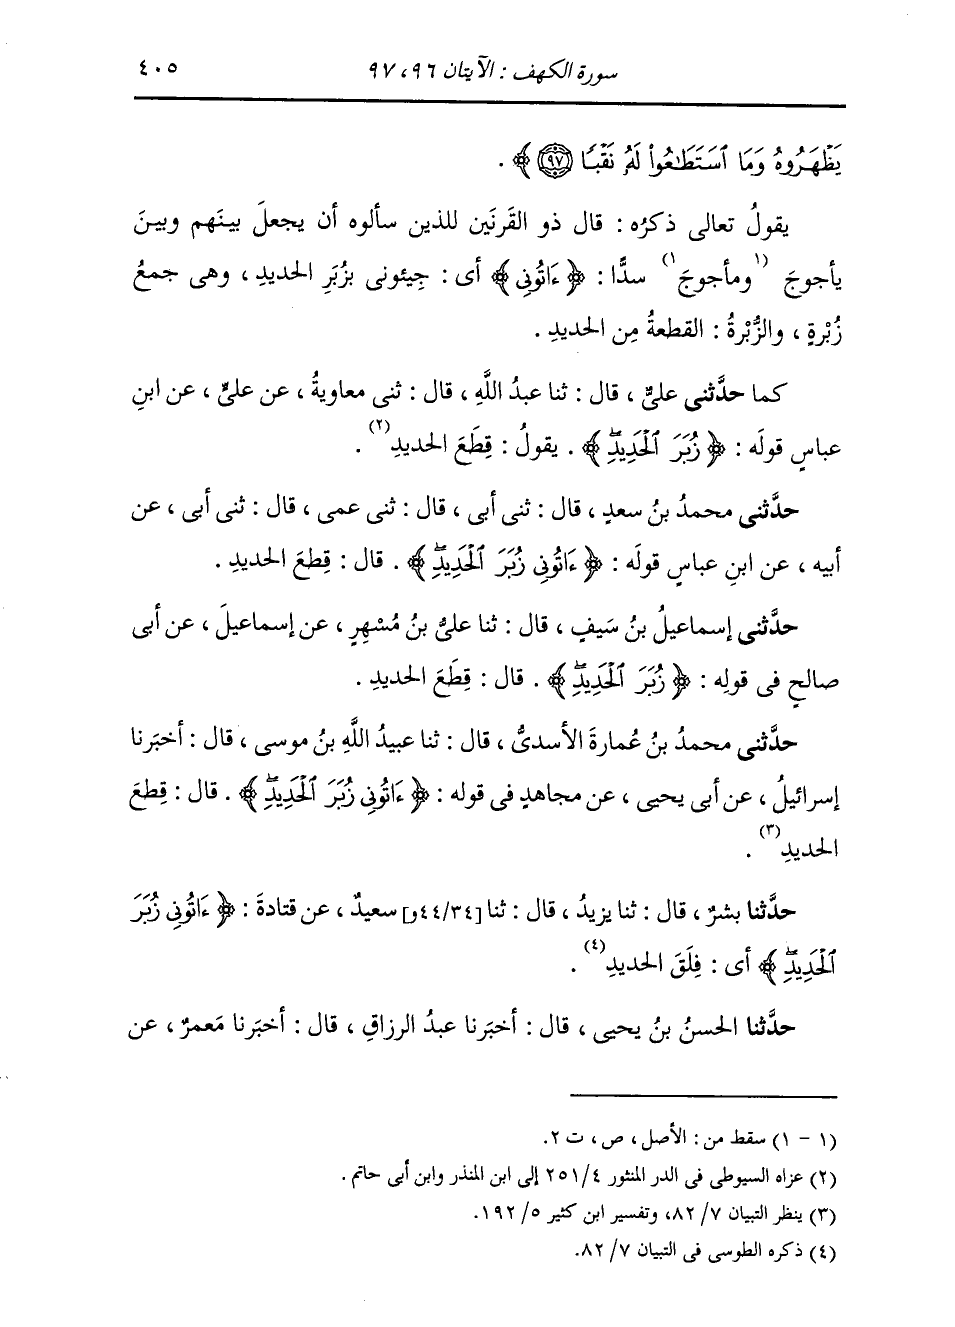 سورة الكهف : الآيتان ٩٦ ، ٩٧ ٤٠٥
يَظْهَرُوهُ وَمَا ٱسْتَطَٰعُوا۟ لَهُۥ نَقْبًا ﴿٩٧﴾ ﴾ .
يقولُ تعالى ذكرُه : قال ذو القَرنَين للذين سألوه أن يجعلَ بينَهم وبينَ
يأجوجَ (١ ومأجوجَ ١) سدًّا : ﴿ ءَاتُونِي ﴾ أى : جِيئونى بزُبَرِ الحديدِ ، وهى جمعُ
زُبْرةٍ ، والزُّبْرةُ : القطعةُ مِن الحديدِ .
كما حدَّثنى علىٌّ ، قال : ثنا عبدُ اللَّهِ ، قال : ثنى معاويةُ ، عن علىٍّ ، عن ابنِ
عباسٍ قولَه : ﴿ زُبَرَ ٱلْحَدِيدِۖ ﴾ . يقولُ : قِطَعَ الحديدِ (٢) .
حدَّثنى محمدُ بنُ سعدٍ ، قال : ثنى أبى ، قال : ثنى عمى ، قال : ثنى أبى ، عن
أبيه ، عن ابنِ عباسٍ قولَه : ﴿ ءَاتُونِي زُبَرَ ٱلْحَدِيدِۖ ﴾ . قال : قِطَعَ الحديدِ .
حدَّثنى إسماعيلُ بنُ سَيفٍ ، قال : ثنا علىُّ بنُ مُسْهِرٍ ، عن إسماعيلَ ، عن أبى
صالحٍ فى قولِه : ﴿ زُبَرَ ٱلْحَدِيدِۖ ﴾ . قال : قِطَعَ الحديدِ .
حدَّثنى محمدُ بنُ عُمارةَ الأسدىُّ ، قال : ثنا عبيدُ اللَّهِ بنُ موسى ، قال : أخبَرنا
إسرائيلُ ، عن أبى يحيى ، عن مجاهدٍ فى قوله : ﴿ ءَاتُونِي زُبَرَ ٱلْحَدِيدِۖ ﴾ . قال : قِطعَ
الحديدِ (٣) .
حدَّثنا بشرٌ ، قال : ثنا يزيدُ ، قال : ثنا [٤٤/٣٤و] سعيدٌ ، عن قتادةَ : ﴿ ءَاتُونِي زُبَرَ
ٱلْحَدِيدِۖ ﴾ أى : فِلَقَ الحديدِ (٤) .
حدَّثنا الحسنُ بنُ يحيى ، قال : أخبَرنا عبدُ الرزاقِ ، قال : أخبَرنا مَعمرٌ ، عن
(١ - ١) سقط من : الأصل ، ص ، ت ٢.
(٢) عزاه السيوطى فى الدر المنثور ٢٥١/٤ إلى ابن المنذر وابن أبى حاتم .
(٣) ينظر التبيان ٧/ ٨٢، وتفسير ابن كثير ٥/ ١٩٢.
(٤) ذكره الطوسى فى التبيان ٧/ ٨٢.